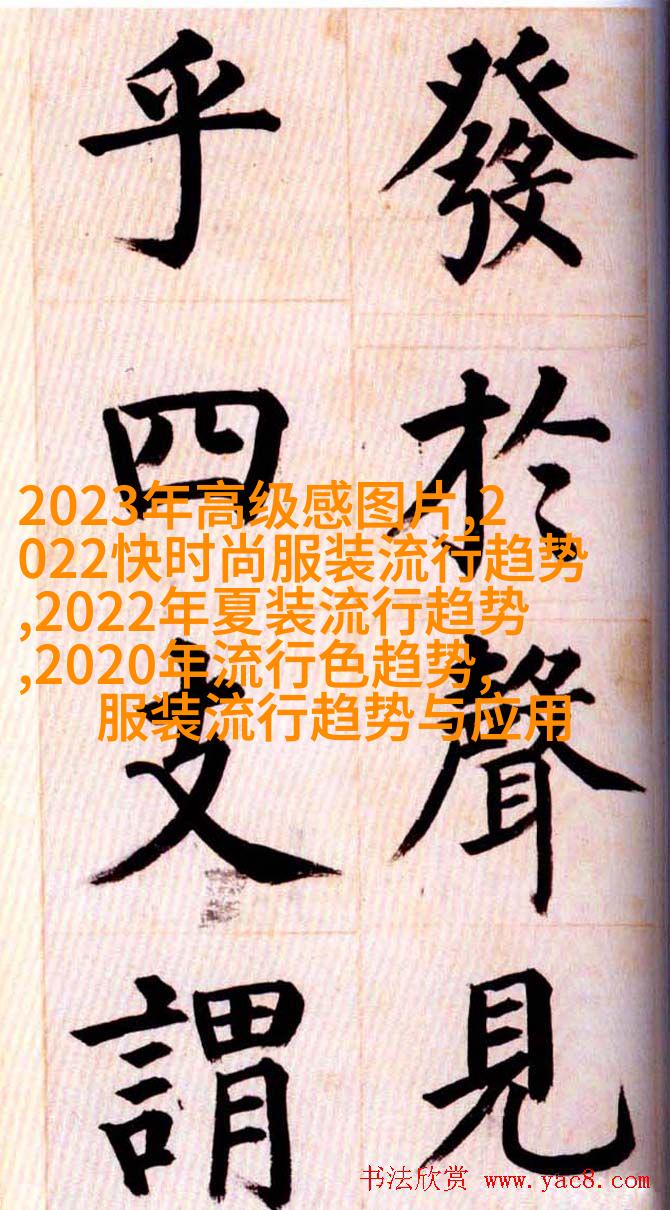 發於聲見
乎四支謂
2023年高级感图片,2
022快时尚服装流行趋势
,2022年夏装流行趋势
,2020年流行色趋势,
服装流行趋势与应用
书法欣赏 www.yac8.com